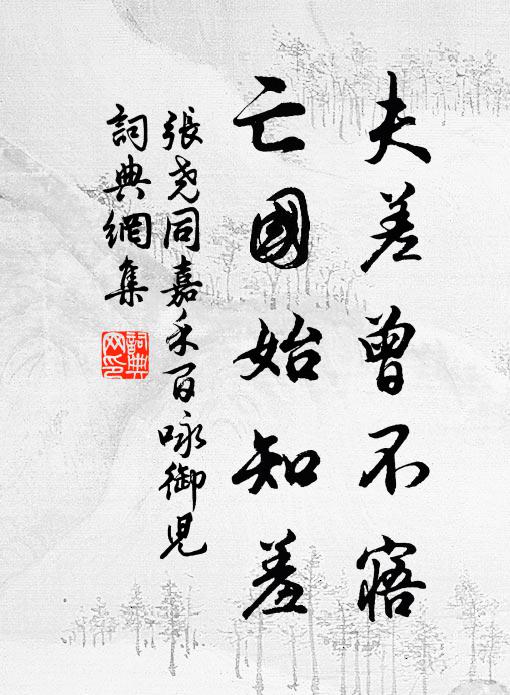 夫差曾不寤
亡國始知羞
張堯同嘉禾百咏御兒
詞典網集
詞典網印